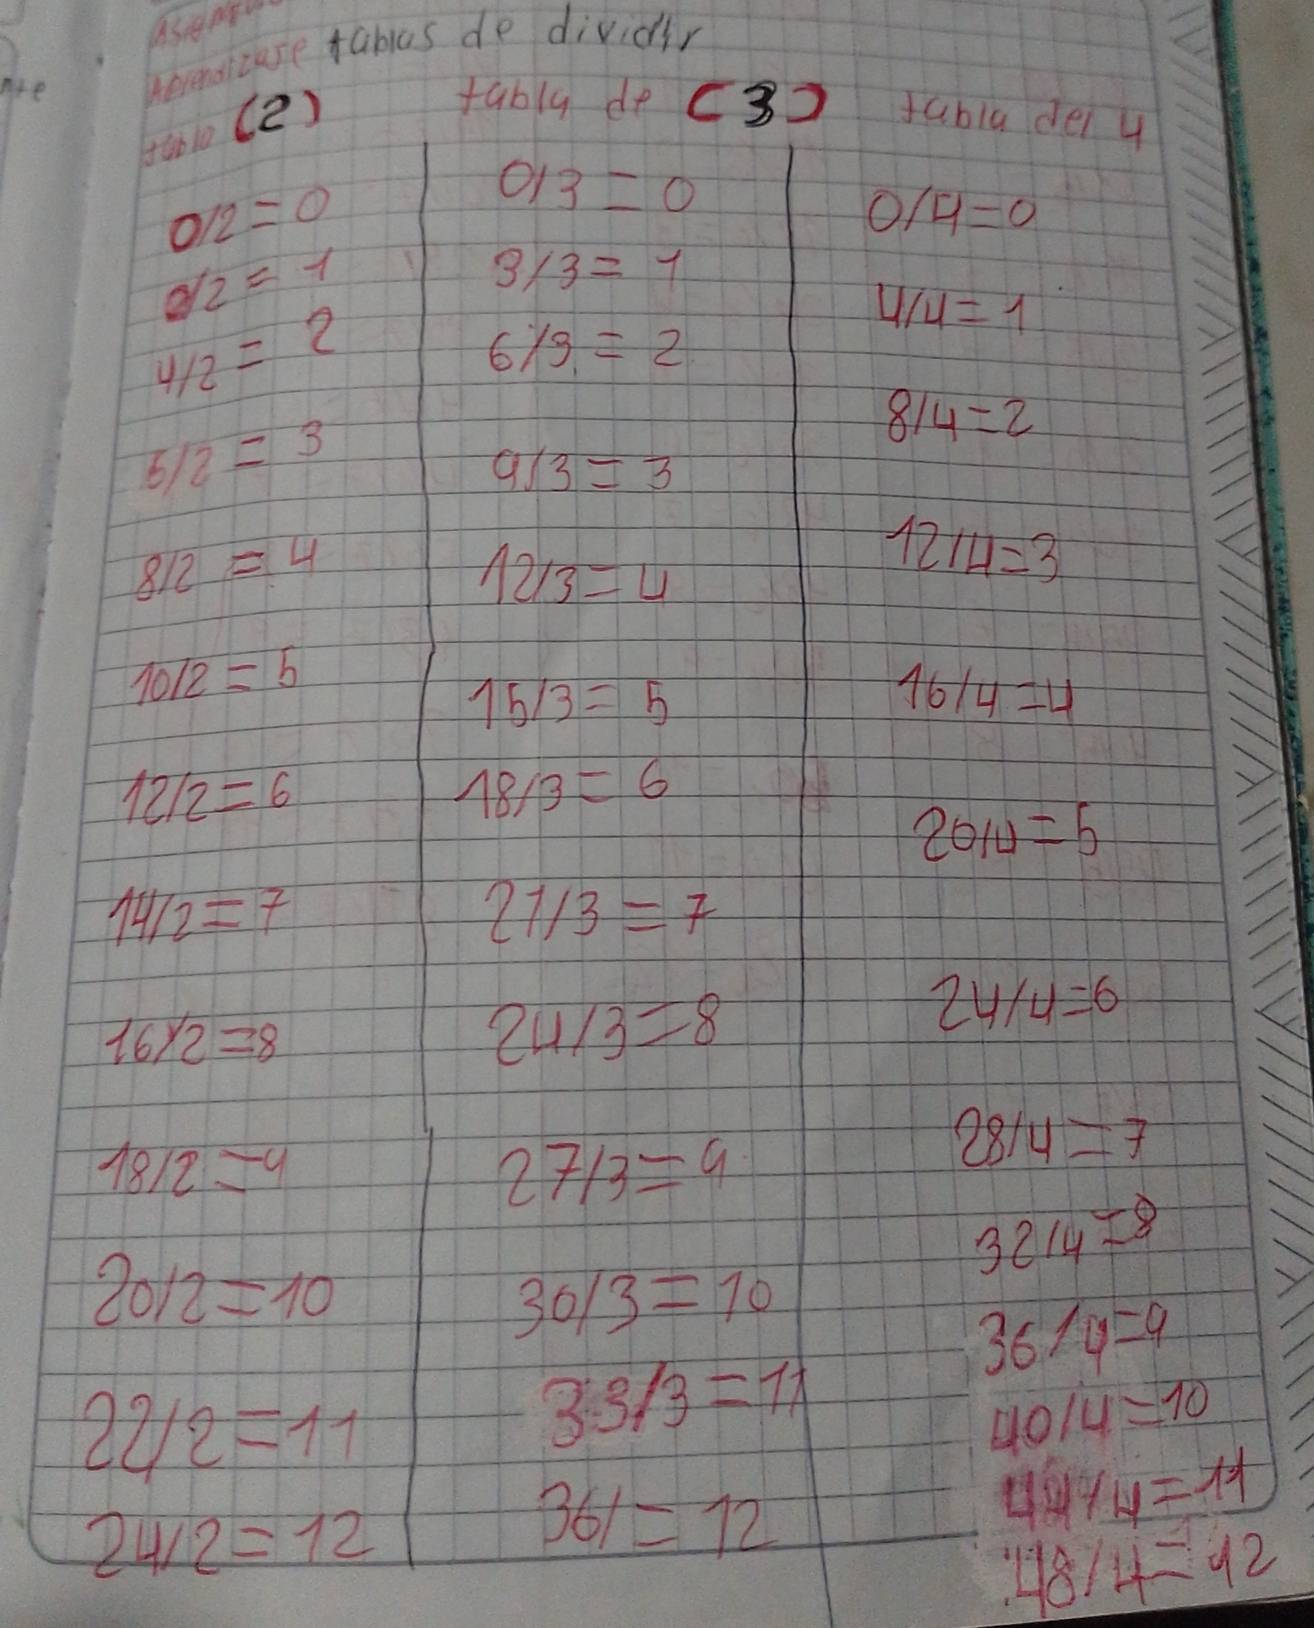 Aprendizaje tablas de dividir
tabla (2)
0/2=0
0/2=1
4/2=2
6/2=3
8/2=4
10/2=5
12/2=6
14/2=7
16/2=8
18/2=9
20/2=10
22/2=11
24/2=12
tabla de (3)
0/3=0
3/3=1
6/3=2
9/3=3
12/3=4
15/3=5
18/3=6
21/3=7
24/3=8
27/3=9
30/3=10
33/3=11
36/=12
tabla del 4
0/4=0
4/4=1
8/4=2
12/4=3
16/4=4
20/4=5
24/4=6
28/4=7
32/4=8
36/4=9
40/4=10
44/4=11
48/4=12